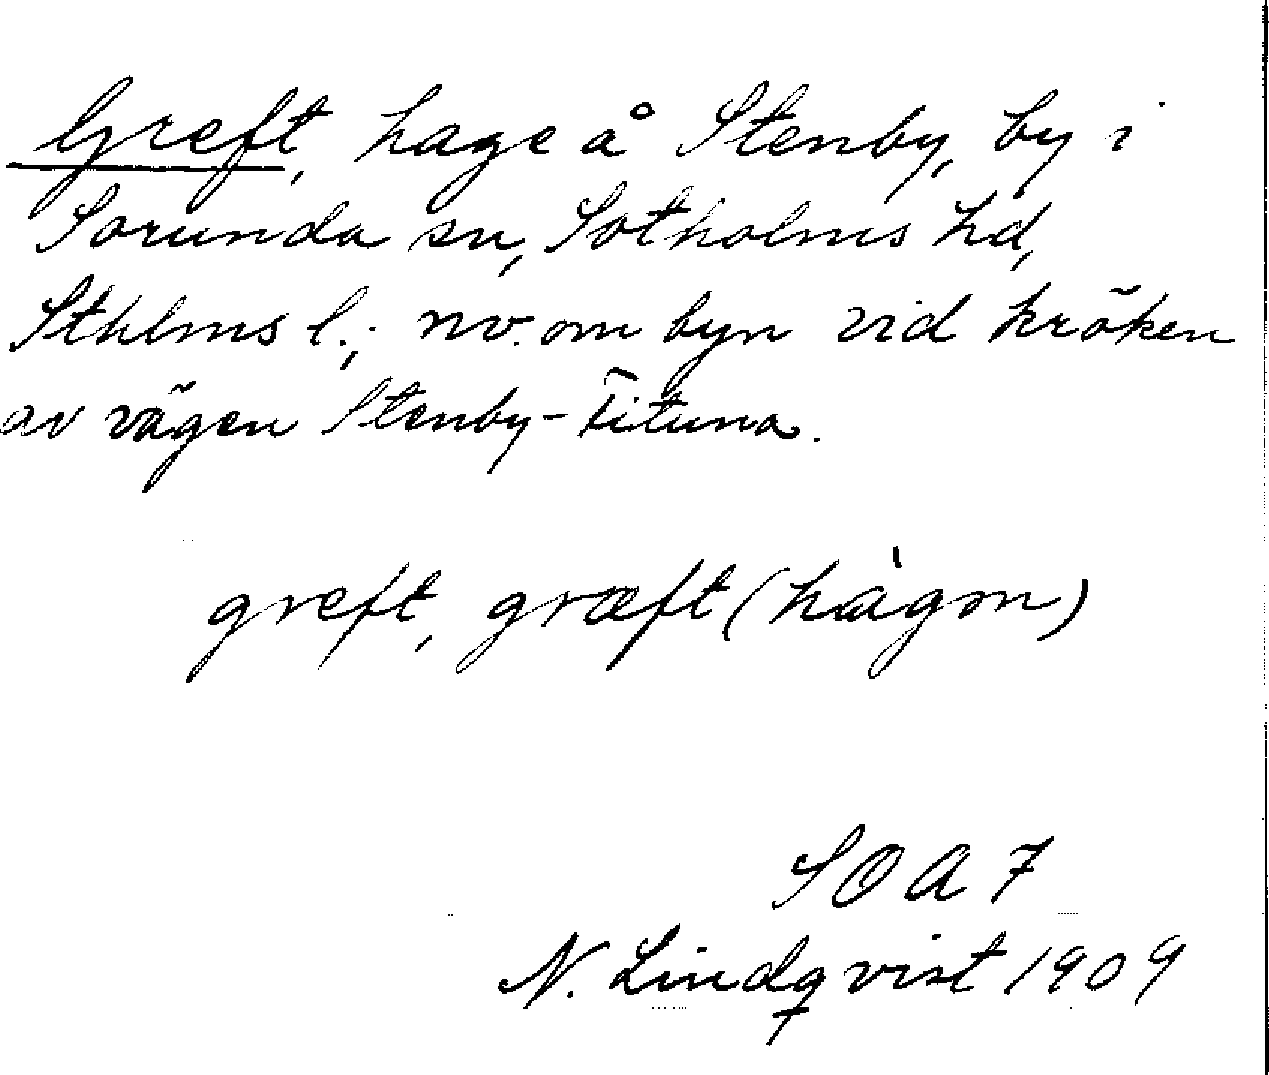 Greft, hage å Stenby, by i
Sorunda sn, Sotholms hd,
Sthlms l.; nv. om byn vid kröken
av vägen Stenby-Fituna.
greft, græft (hàgon)
SOA 7
N. Lindqvist 1909